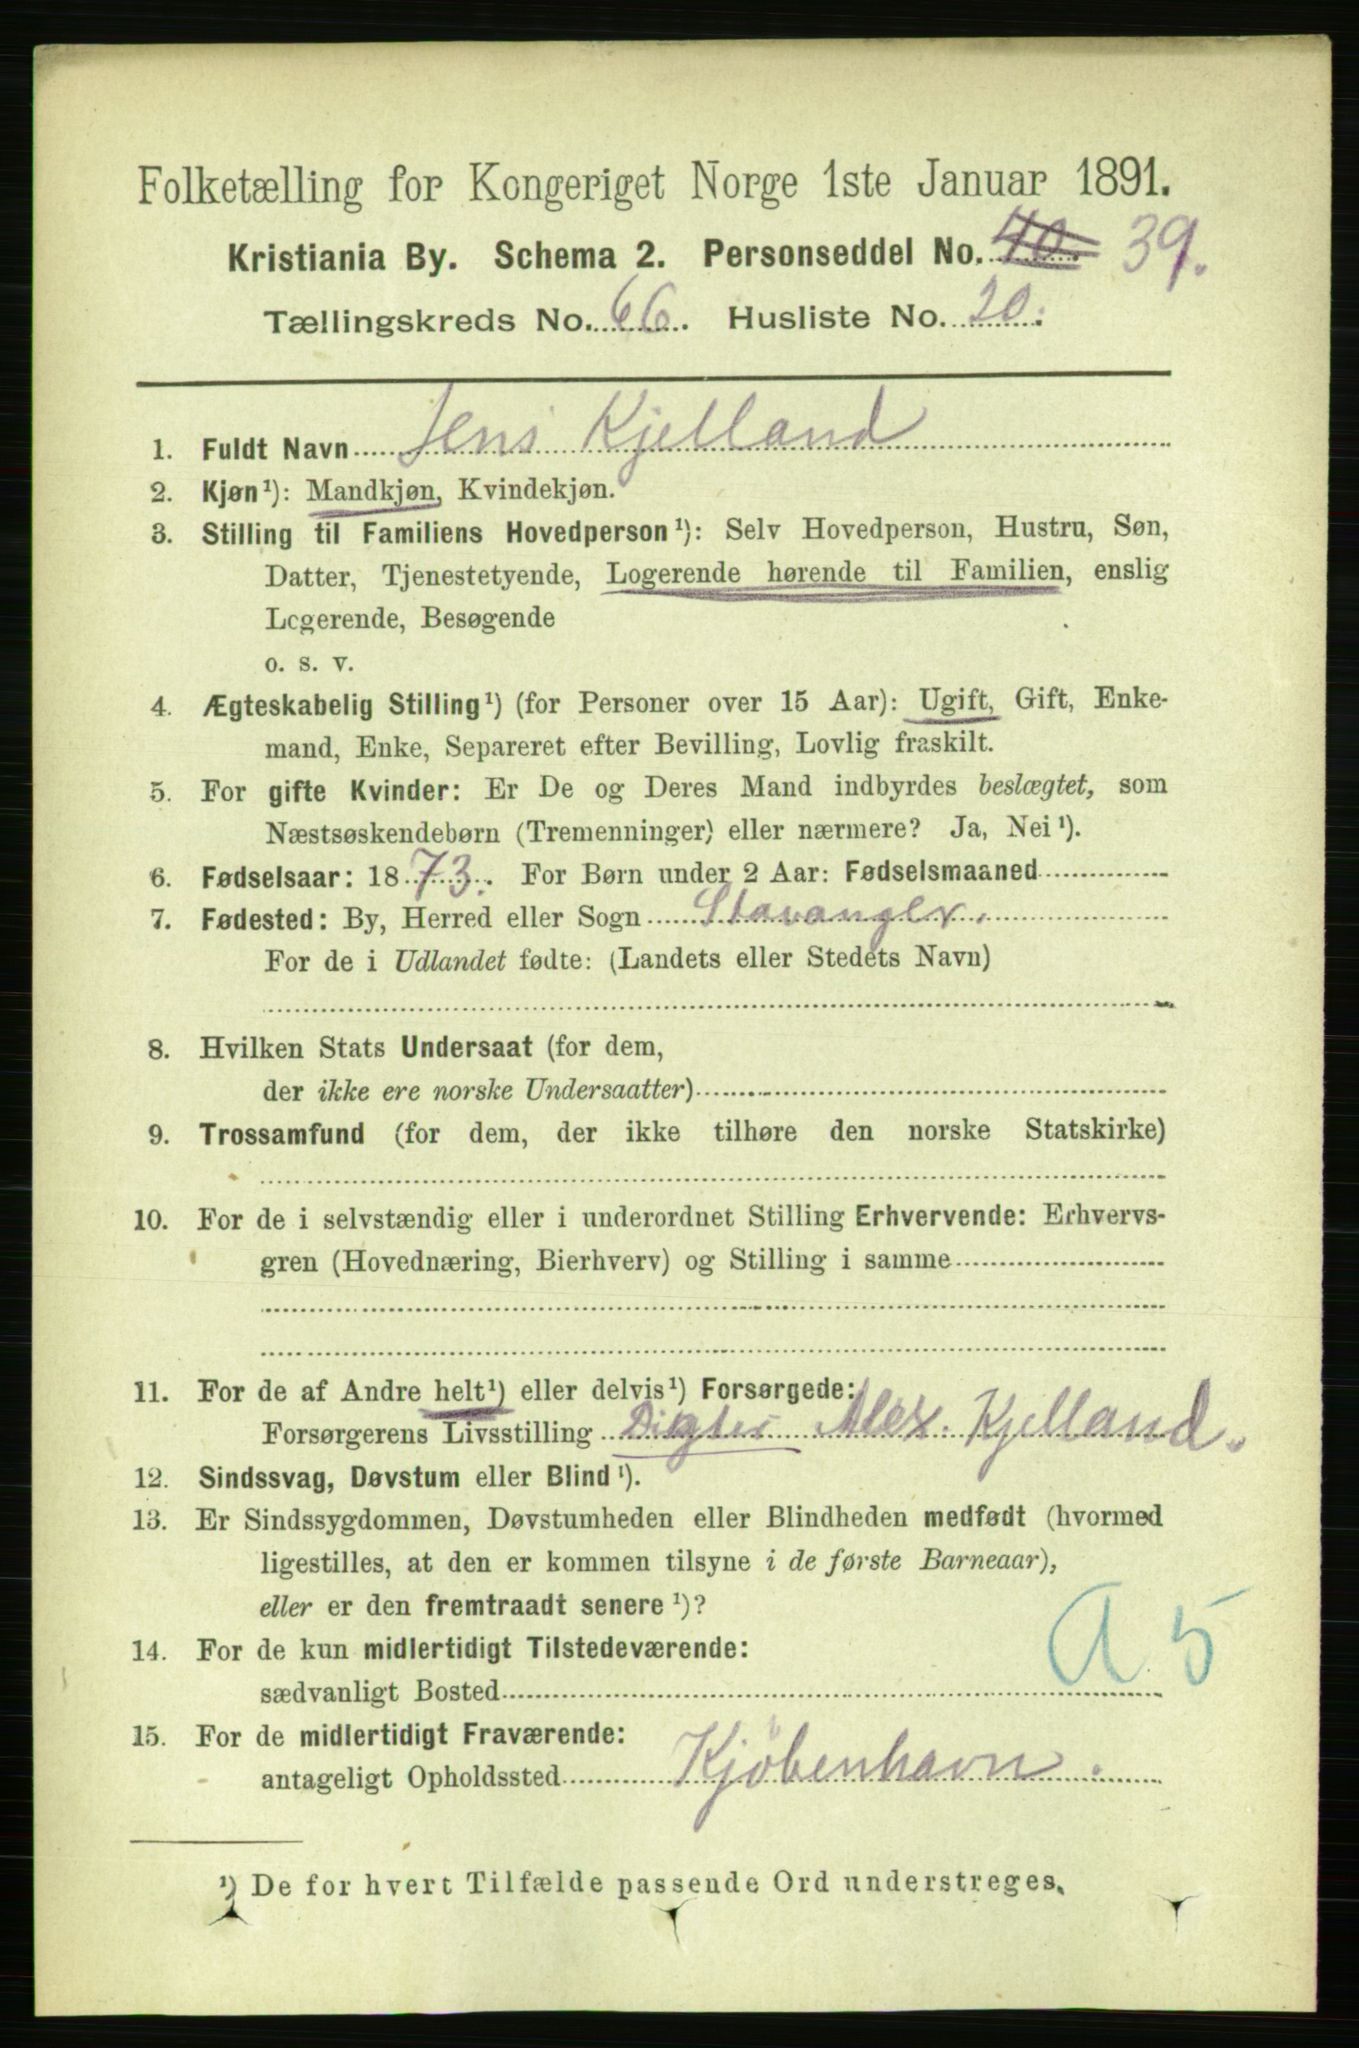 Folketælling for Kongeriget Norge 1ste Januar 1891.
Kristiania By. Schema 2. Personseddel No. 40. 39.
Tællingskreds No. 66. Husliste No. 20.
1. Fuldt Navn Jens Kjelland
2. Kjøn¹): Mandkjøn, Kvindekjøn.
3. Stilling til Familiens Hovedperson¹): Selv Hovedperson, Hustru, Søn,
Datter, Tjenestetyende, Logerende hørende til Familien, enslig
Logerende, Besøgende
o. s. v.
4. Ægteskabelig Stilling¹) (for Personer over 15 Aar): Ugift, Gift, Enke-
mand, Enke, Separeret efter Bevilling, Lovlig fraskilt.
5. For gifte Kvinder: Er De og Deres Mand indbyrdes beslægtet, som
Næstsøskendebørn (Tremenninger) eller nærmere? Ja, Nei¹).
6. Fødselsaar: 1873. For Børn under 2 Aar: Fødselsmaaned
7. Fødested: By, Herred eller Sogn Stavanger.
For de i Udlandet fødte: (Landets eller Stedets Navn)
8. Hvilken Stats Undersaat (for dem,
der ikke ere norske Undersaatter)
9. Trossamfund (for dem, der ikke tilhøre den norske Statskirke)
10. For de i selvstændig eller i underordnet Stilling Erhvervende: Erhvervs-
gren (Hovednæring, Bierhverv) og Stilling i samme
11. For de af Andre helt¹) eller delvis¹) Forsørgede:
Forsørgerens Livsstilling Digter Alex. Kjelland.
12. Sindssvag, Døvstum eller Blind¹).
13. Er Sindssygdommen, Døvstumheden eller Blindheden medfødt (hvormed
ligestilles, at den er kommen tilsyne i de første Barneaar),
eller er den fremtraadt senere¹)?
A 5
14. For de kun midlertidigt Tilstedeværende:
sædvanligt Bosted
15. For de midlertidigt Fraværende:
antageligt Opholdssted Kjöbenhavn.
¹) De for hvert Tilfælde passende Ord understreges.